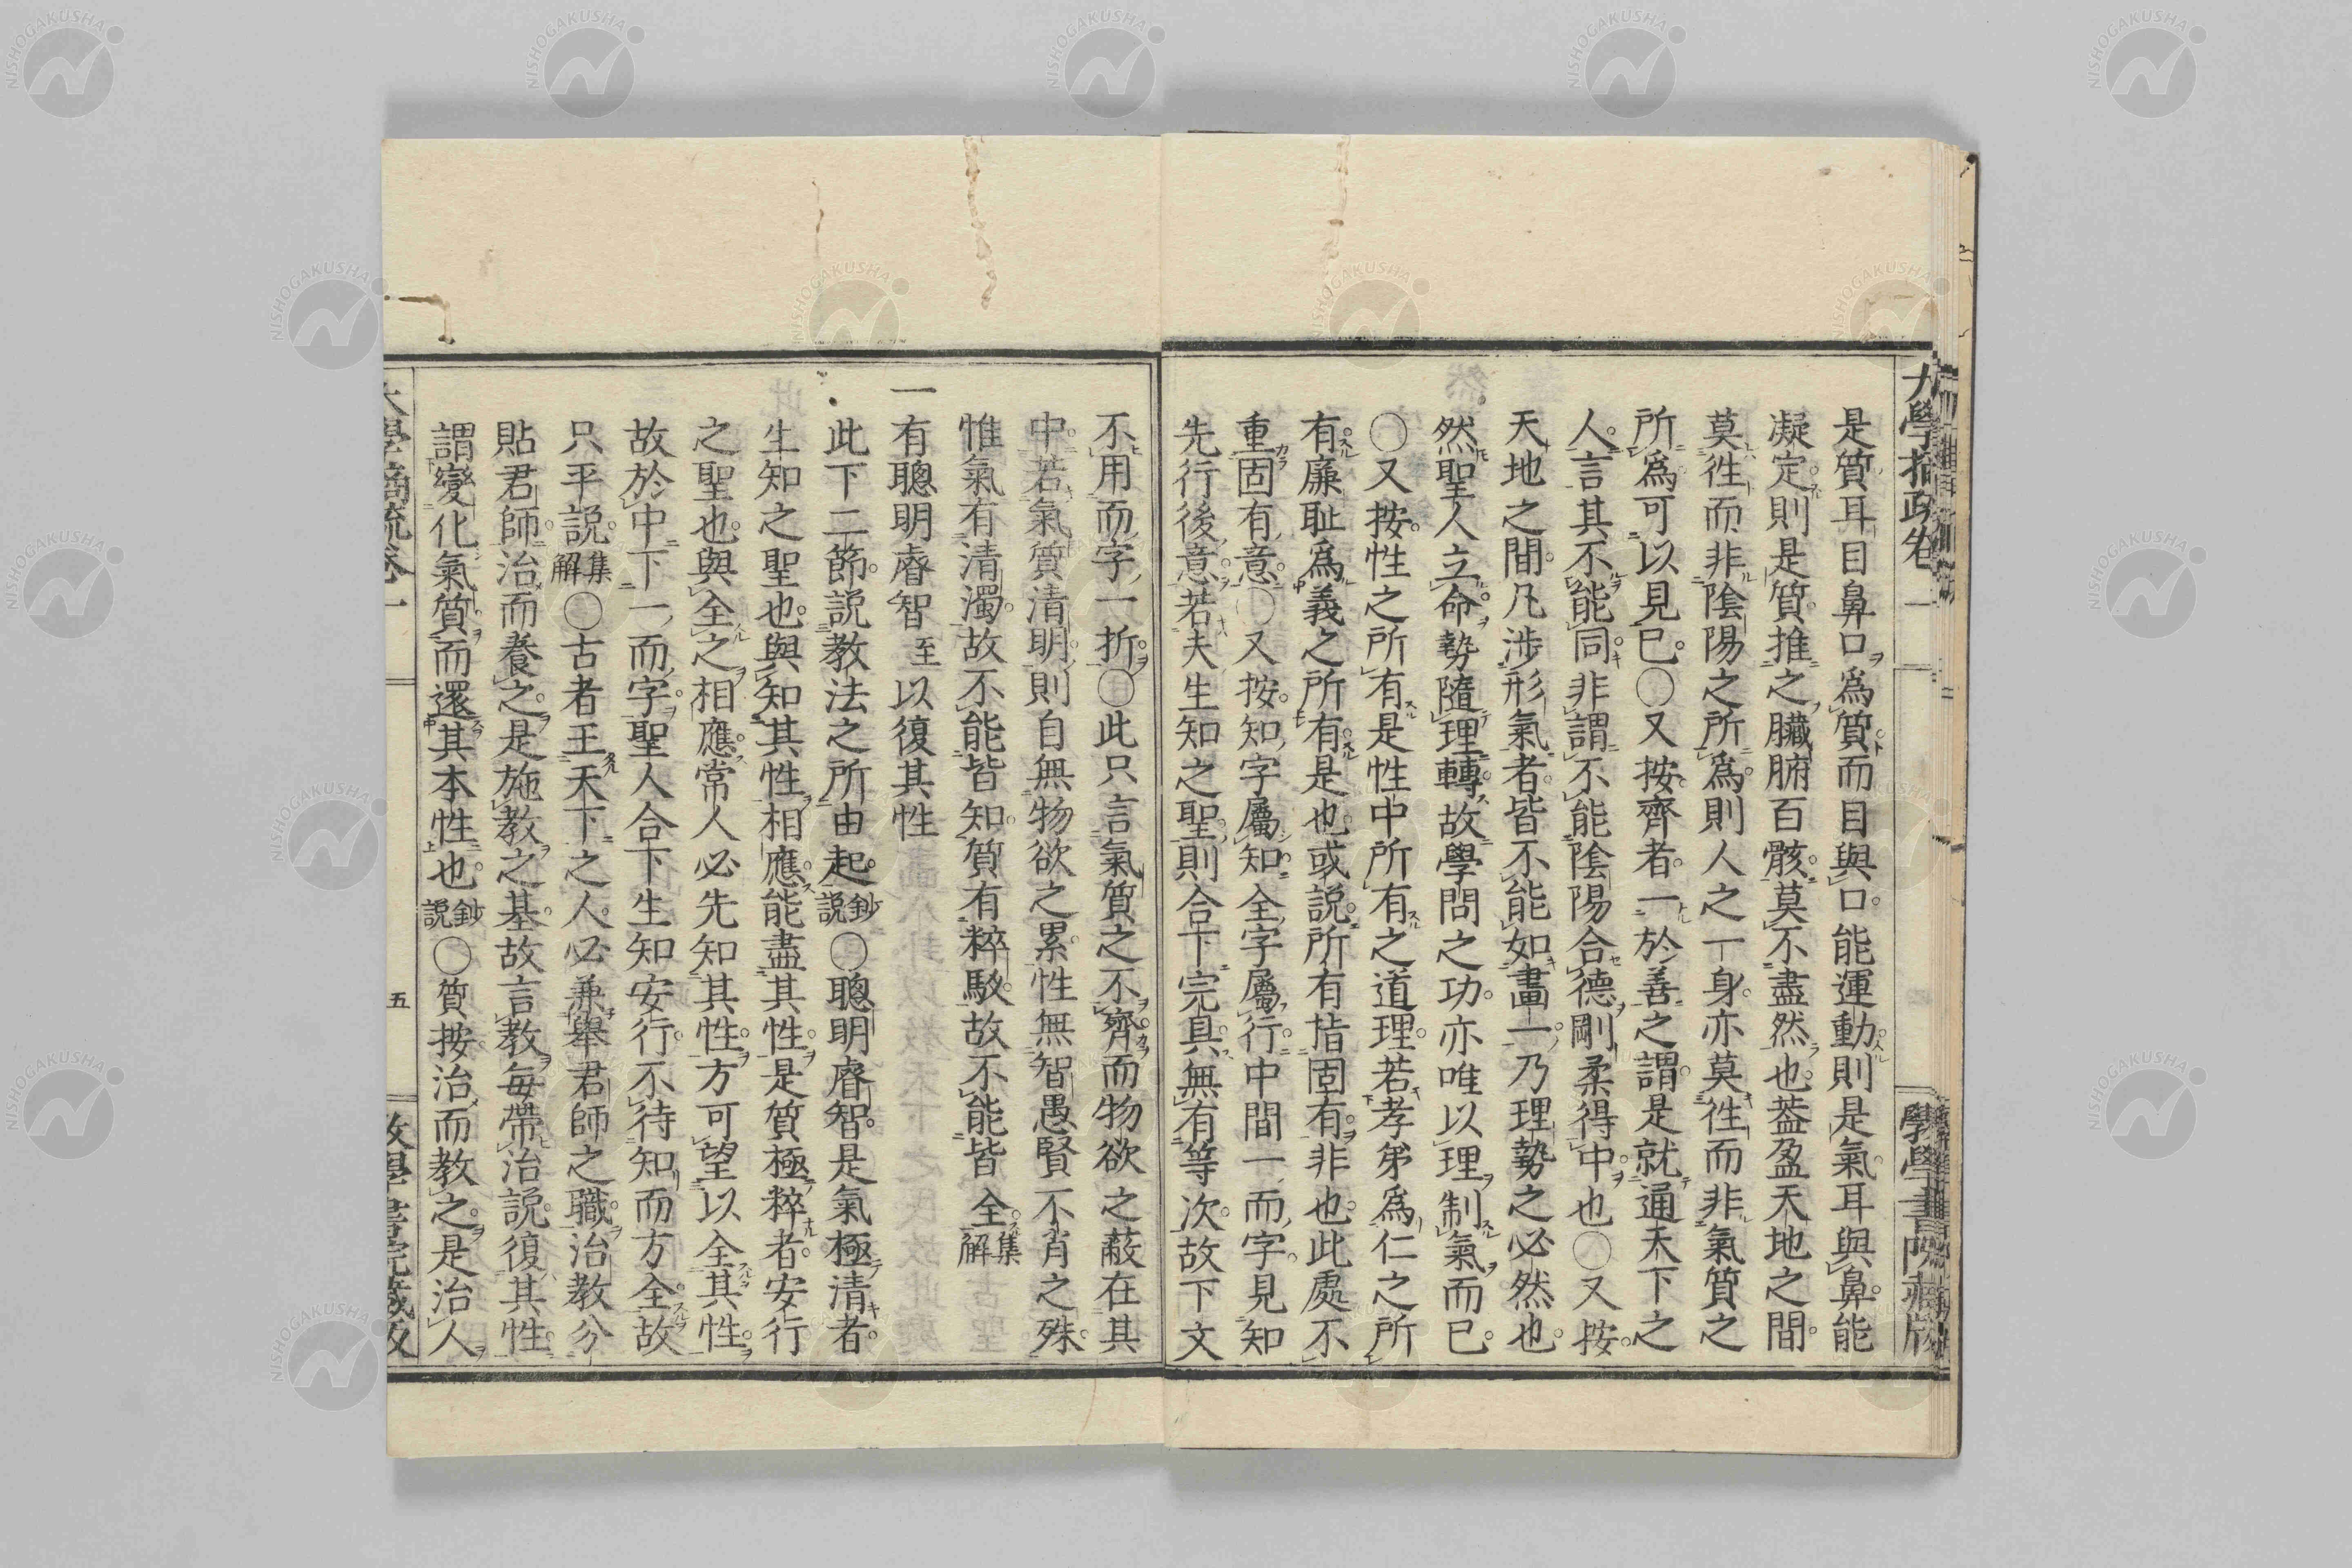 是質耳目鼻口爲質而目與口能運動則是氣耳與鼻能
凝定則是質推之臟腑百骸莫不盡然也葢盈天地之間
莫徃而非陰陽之所爲則人之一身亦莫徃而非氣質之
所爲可以見已〇又按齊者一於善之謂是就通天下之
人言其不能同非謂不能陰陽合德剛柔得中也〇又按
天地之間凡涉形氣者皆不能如畫一乃理勢之必然也
然聖人立命勢隨理轉故學問之功亦唯以理制氣而已
〇又按性之所有是性中所有之道理若孝弟爲仁之所
有廉耻爲義之所有是也或説所有指固有非也此處不
重固有意〇又按知字屬知全字屬行中間一而字見知
先行後意若夫生知之聖則合下完具無有等次故下文
不用而字一折〇此只言氣質之不齊而物欲之蔽在其
中若氣質清明則自無物欲之累性無智愚賢不肖之殊
惟氣有清濁故不能皆知質有粹駁故不能皆全集解
一有聰明睿智至以復其性
此下二節説教法之所由起鈔説〇聰明睿智是氣極清者
生知之聖也與知其性相應能盡其性是質極粹者安行
之聖也與全之相應常人必先知其性方可望以全其性
故於中下一而字聖人合下生知安行不待知而方全故
只平説集解〇古者王天下之人必兼舉君師之職治教分
貼君師治而養之是施教之基故言教毎帶治説復其性
謂變化氣質而還其本性也鈔説〇質按治而教之是治人
五
NISHOGAKUSHA